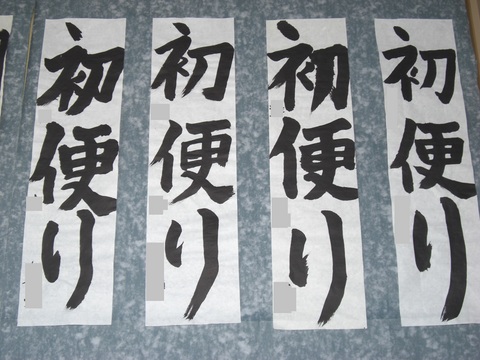 初便り
初便り
初便り
初便り